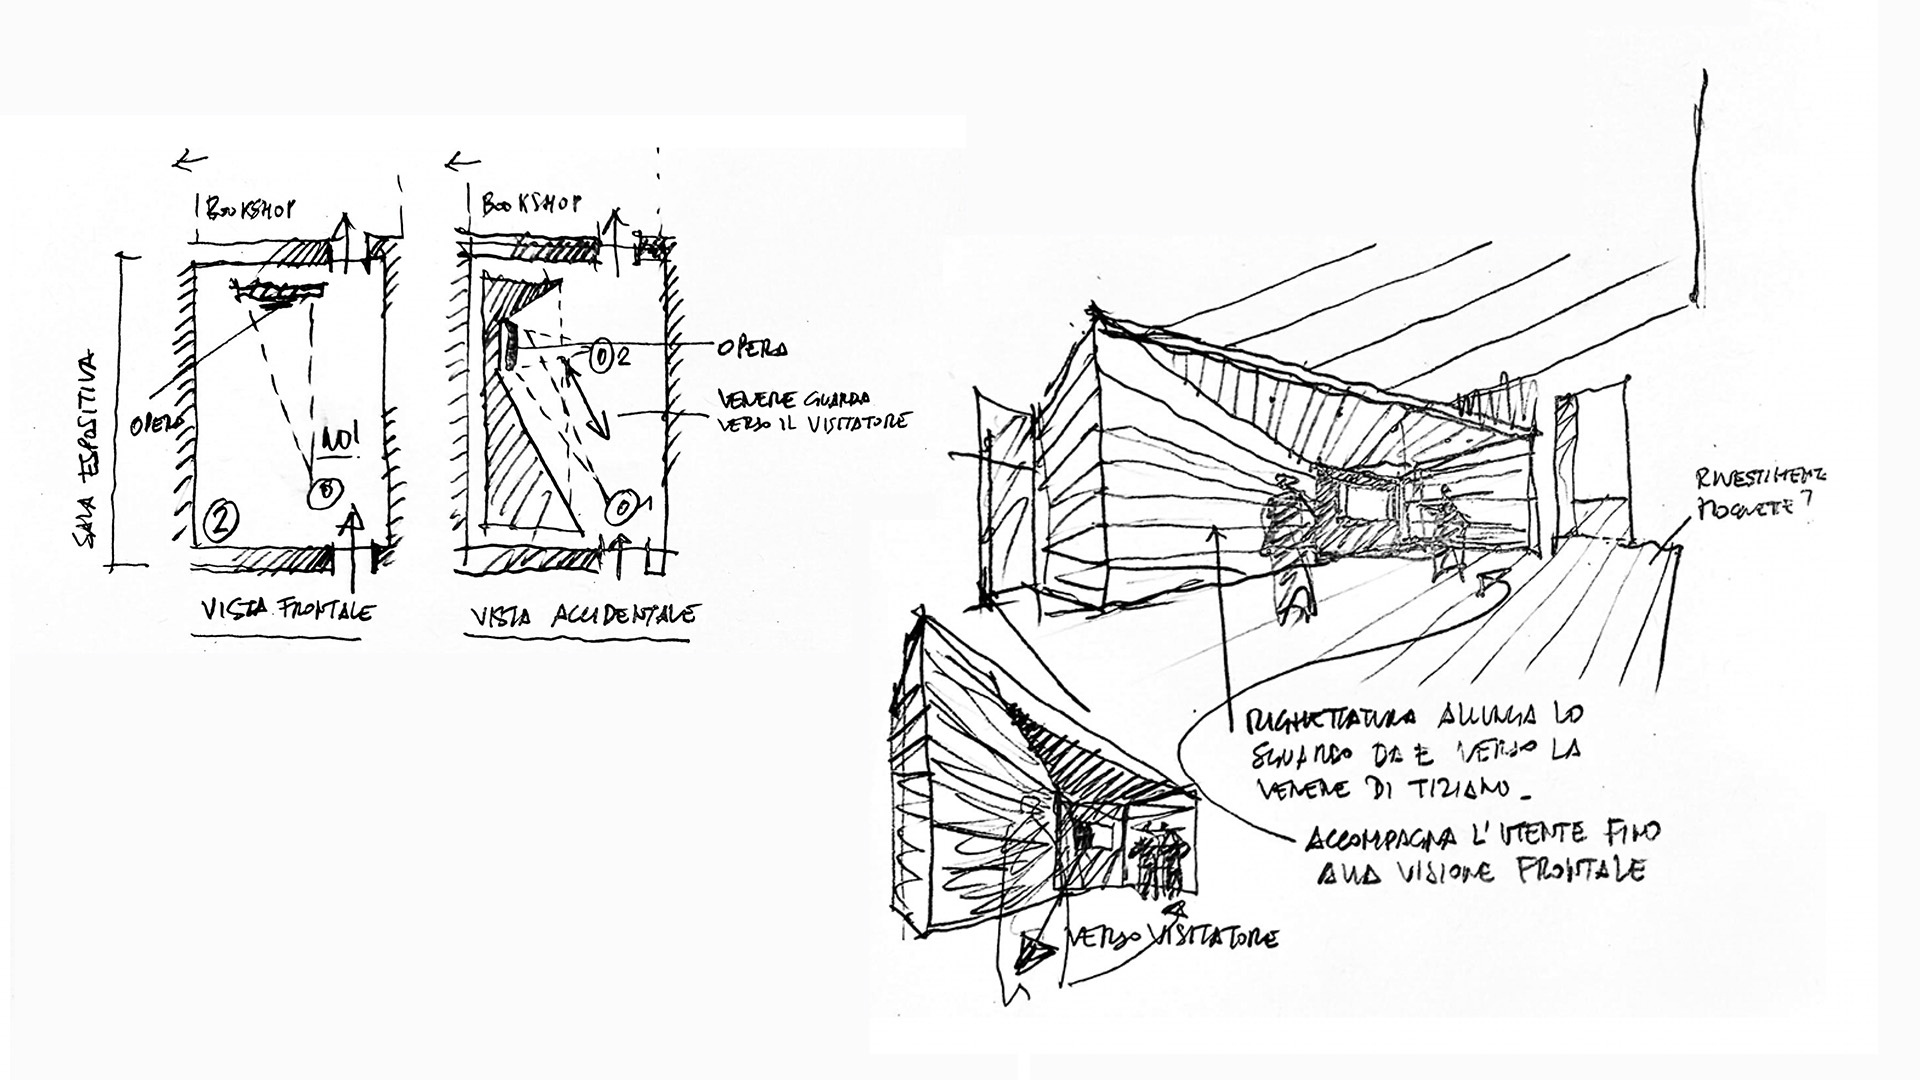 BOOKSHOP
OPERA
NO!
0
2
SALA ESPOSITIVA
VISTA FRONTALE
BOOKSHOP
0 2
OPERA
VENERE GUARDA
VERSO IL VISITATORE
0 1
VISTA ACCIDENTALE
RIVESTIMENTO
MOQUETTE?
RIGHETTATURA ALLUNGA LO
SGUARDO DA E VERSO LA
VENERE DI TIZIANO_
ACCOMPAGNA L'UTENTE FINO
ALLA VISIONE FRONTALE
VERSO VISITATORE